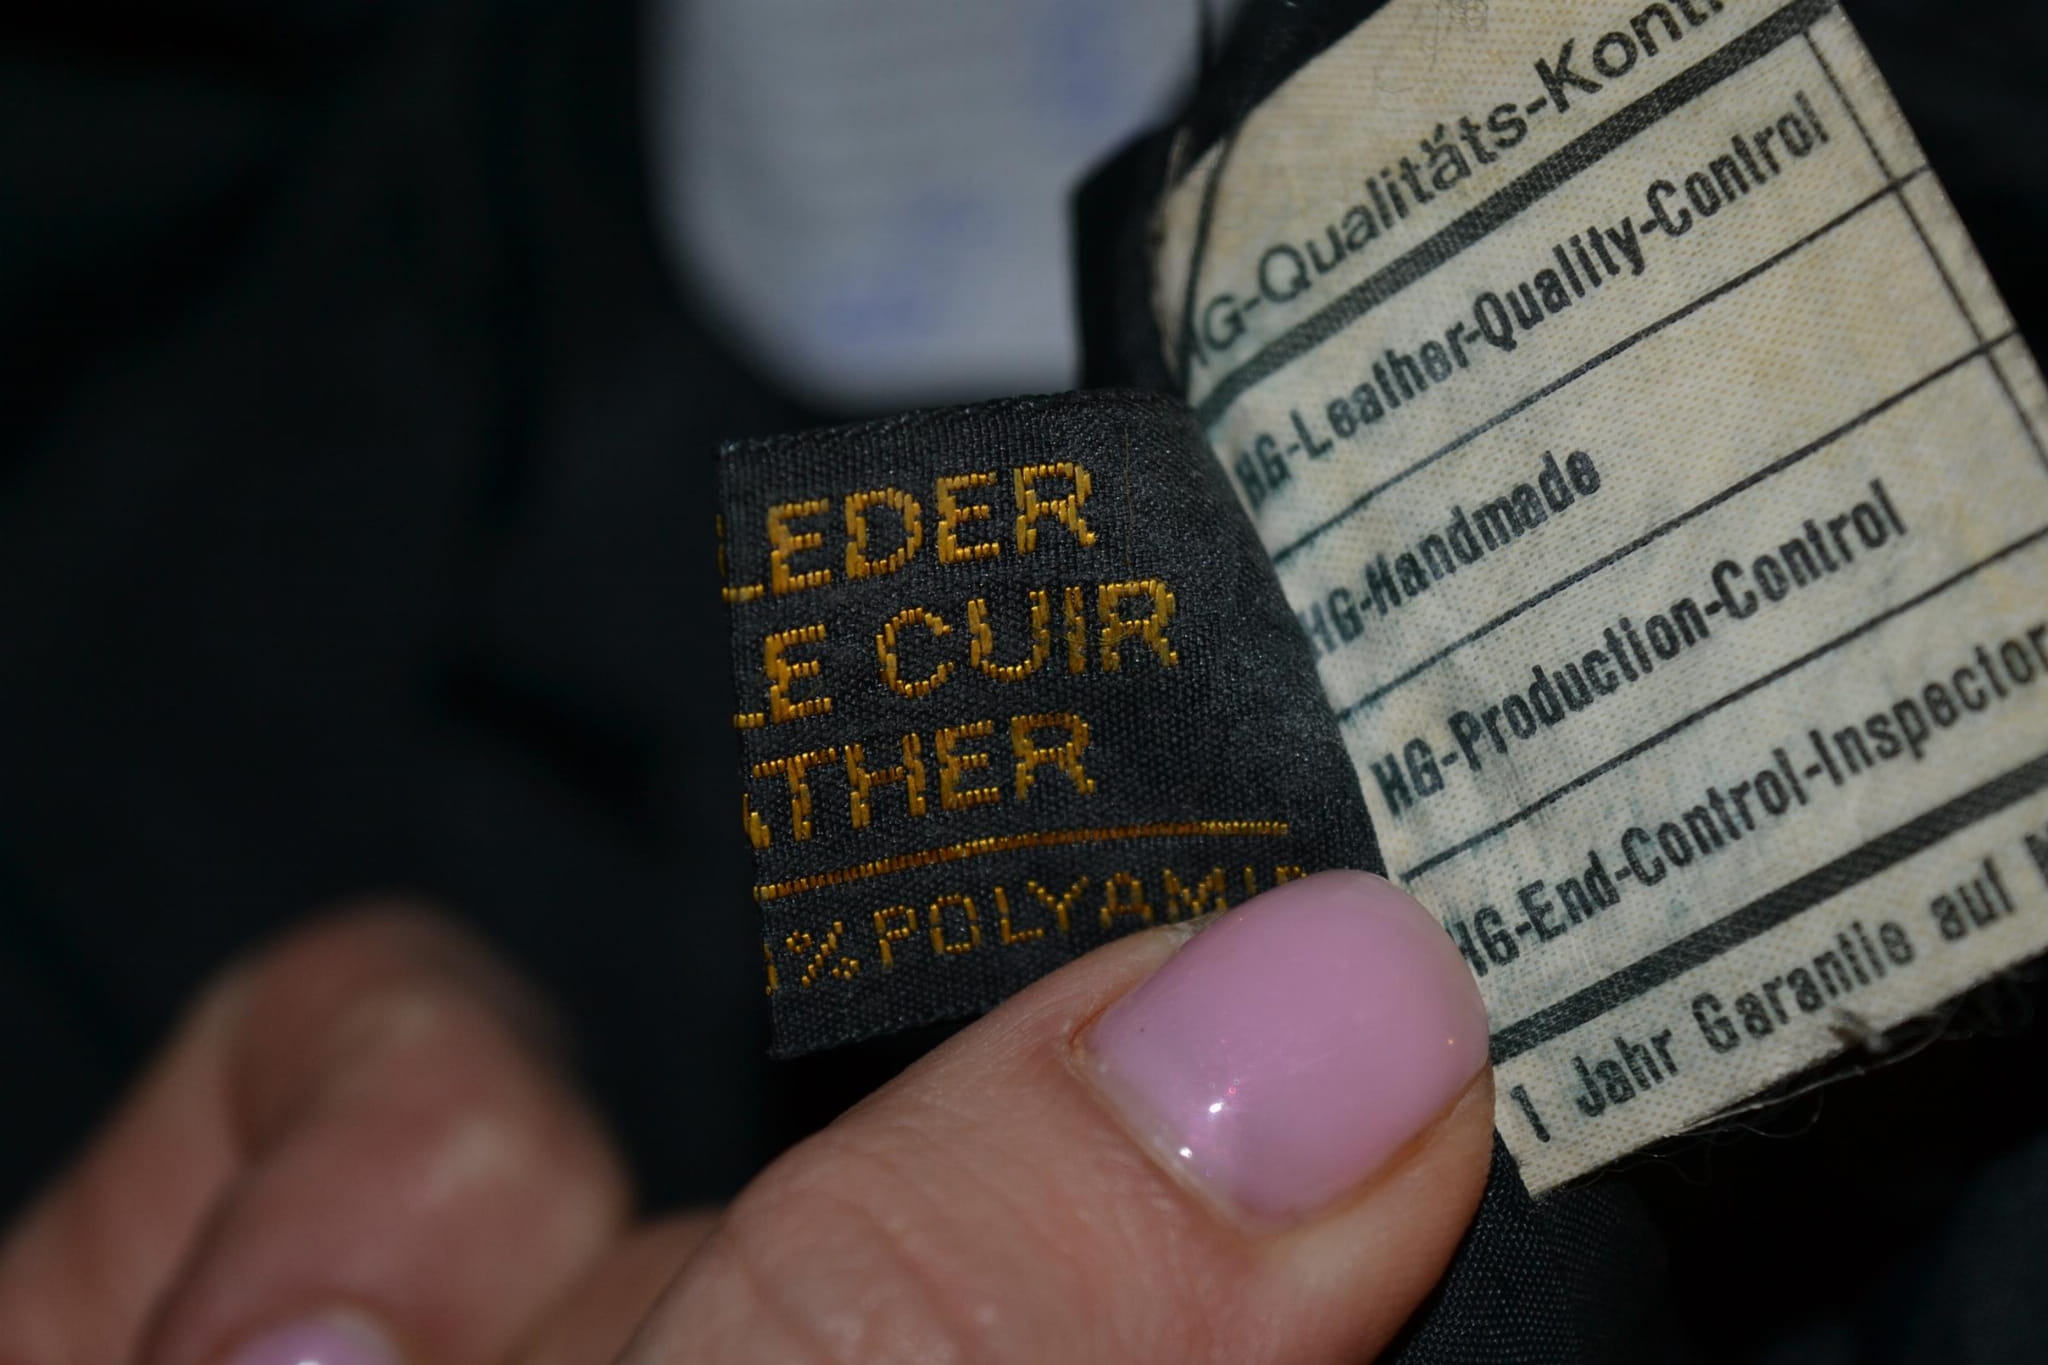 LEDER
LE CUIR
ATHER
% POLYAMID
HG-Qualitäts-Kontr
HG-Leather-Quality-Control
HG-Handmade
HG-Production-Control
HG-End-Control-Inspector
1 Jahr Garantie auf